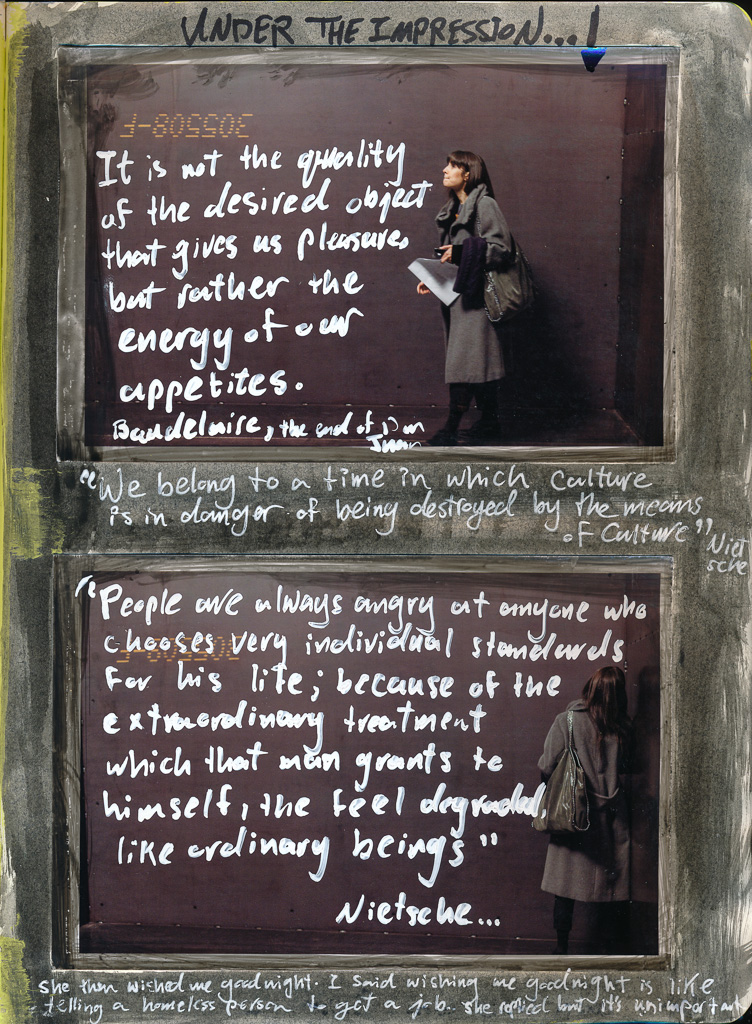 UNDER THE IMPRESSION...!
305508-F
It is not the quality
of the desired object
that gives us pleasure,
but rather the
energy of our
appetites.
Baudelaire, the end of Don
Juan
"We belong to a time in which culture
is in danger of being destroyed by the means
of culture"
Niet
sche
"People are always angry at anyone who
chooses very individual standards
for his life; because of the
extraordinary treatment
which that man grants to
himself, the feel degraded,
like ordinary beings"
Nietsche...
She then wished me goodnight. I said wishing me goodnight is like
telling a homeless person to get a job.. she replied but it's unimportant